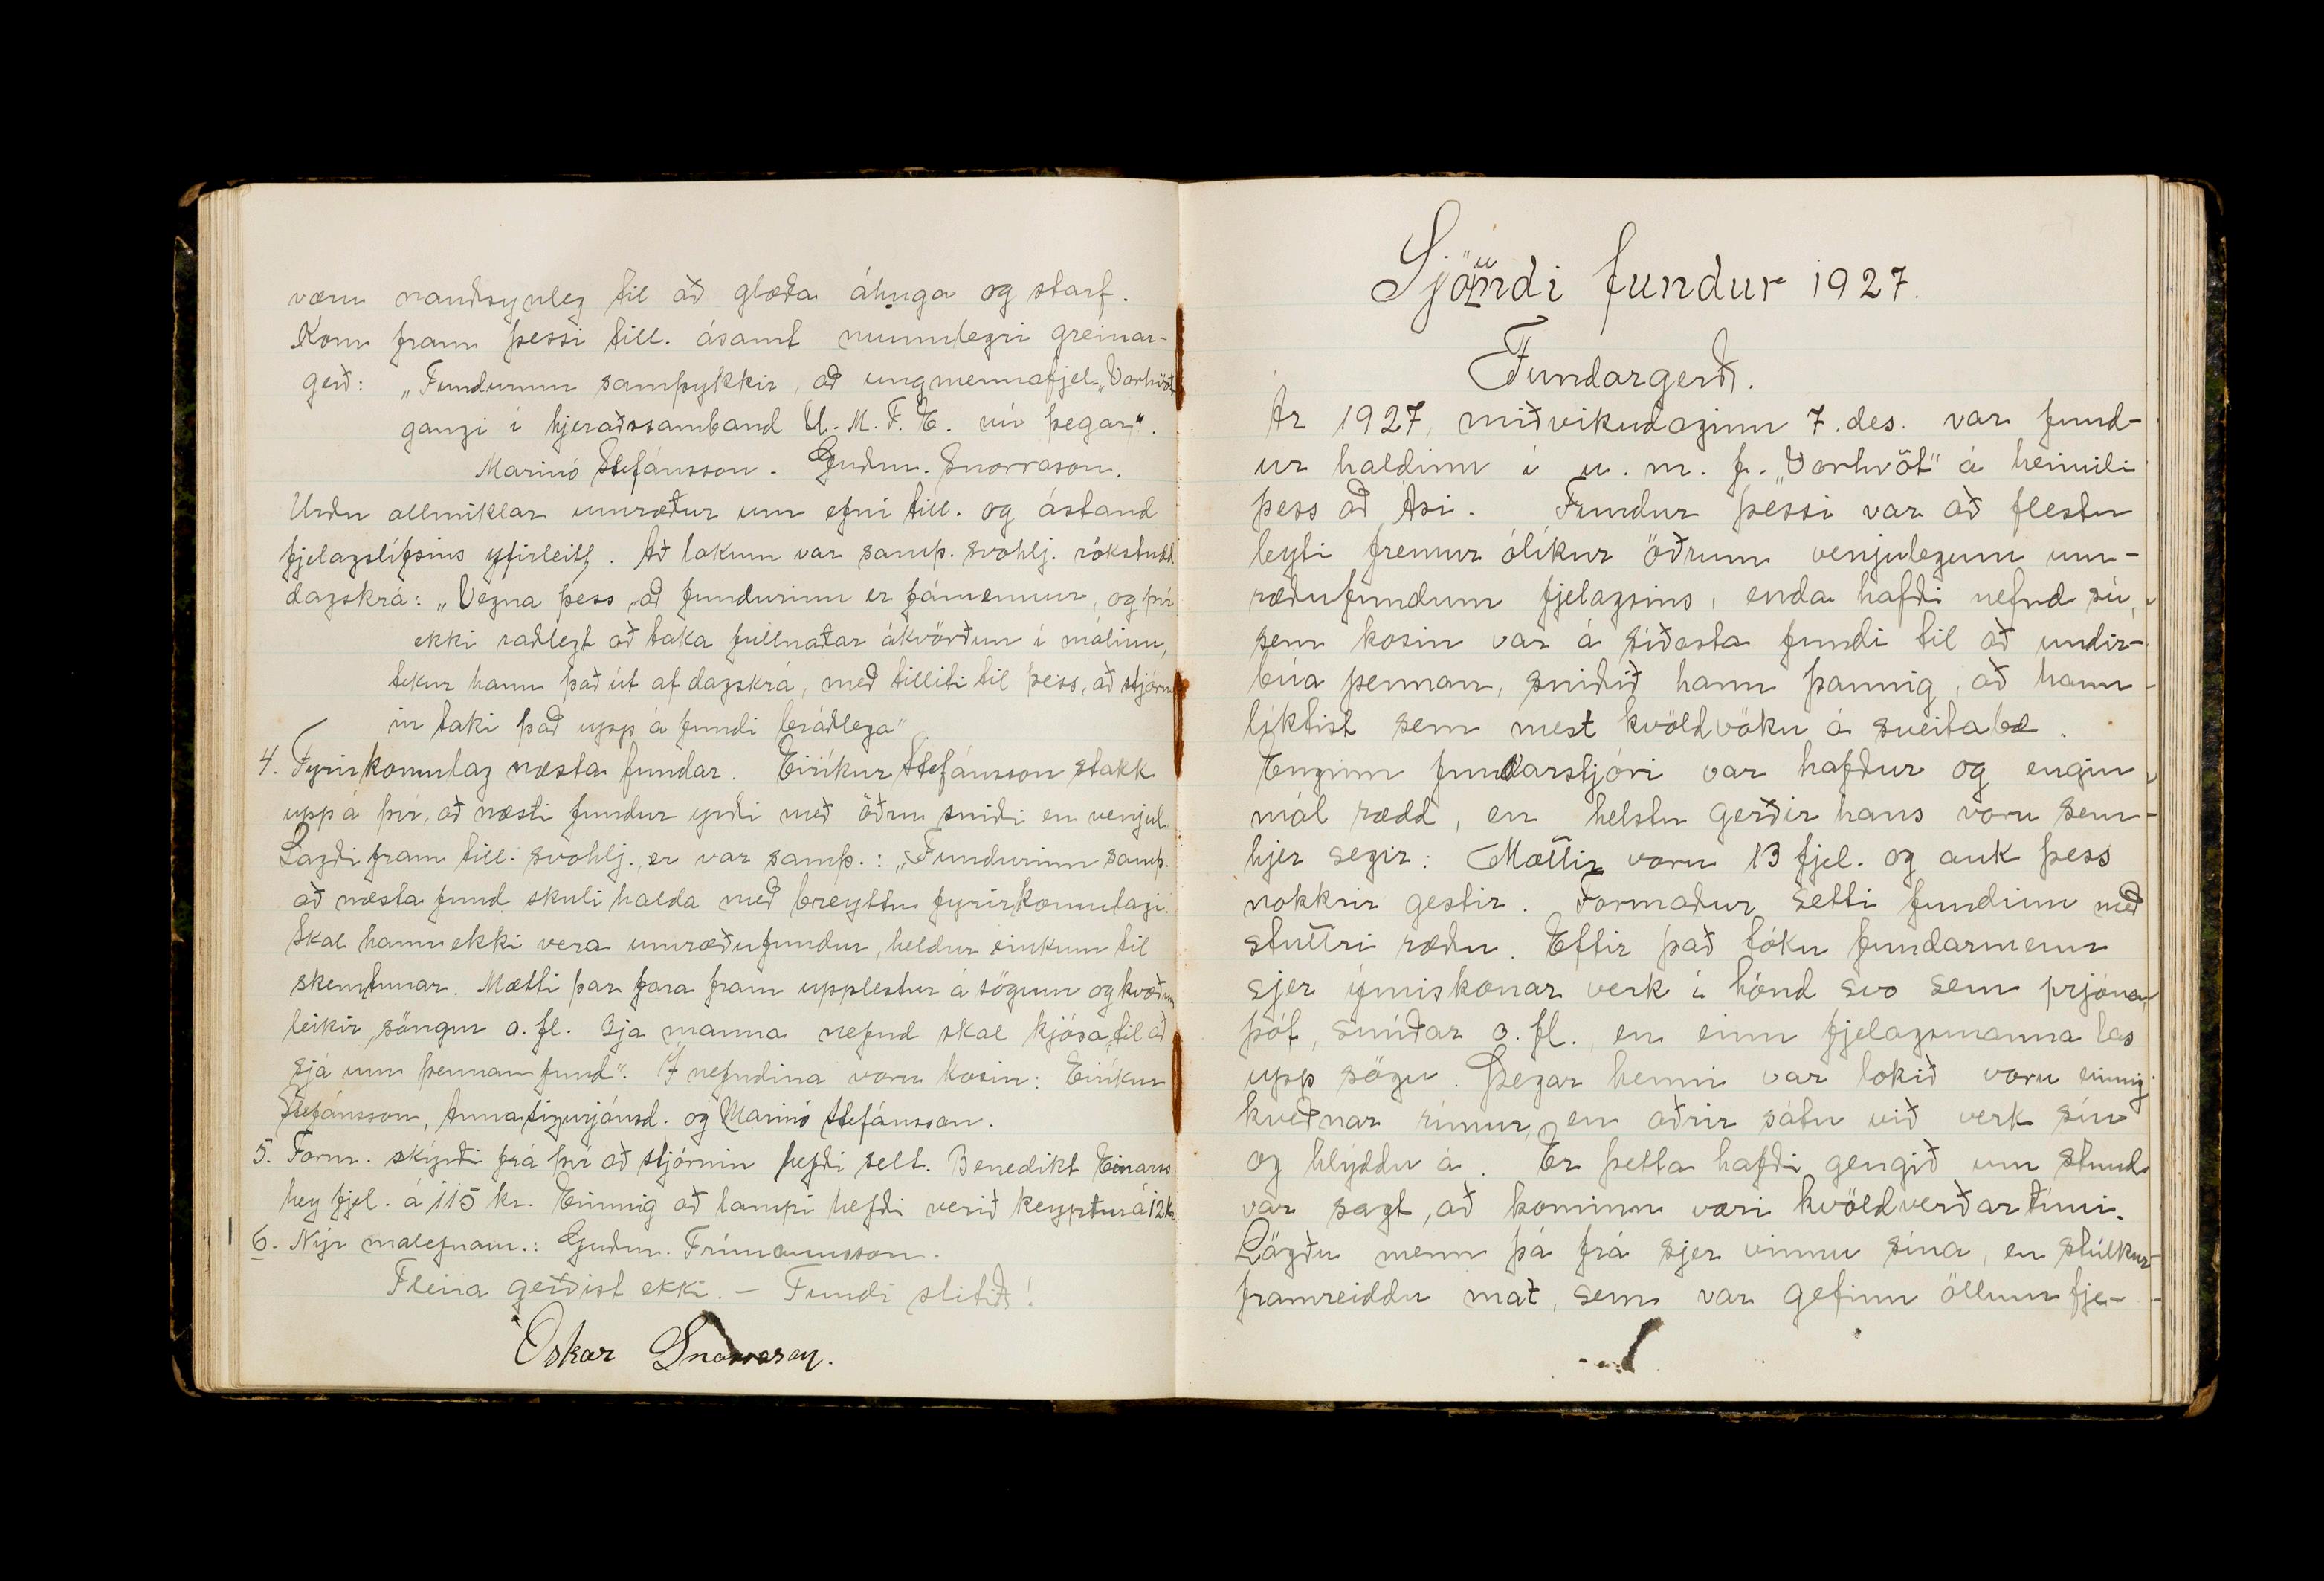 væru nauðsynleg til að glæða áhuga og starf.
Kom fram þessi till. ásamt munnlegri greinar-
gerð: „Fundurinn samþykkir, að ungmennafjel. „Vorhvöt"
gangi í hjeraðssamband U. M. F. E. nú þegar".
Marinó Stefánsson. Guðm. Snorrason.
Urðu allmiklar umræður um efni till. og ástand
fjelagslífsins yfirleitt. Að lokum var samþ. svohlj. rökstudd
dagskrá: „Vegna þess að fundurinn er fámennur, og því
ekki ráðlegt að taka fullnaðar ákvörðun í málinu,
tekur hann það út af dagskrá, með tilliti til þess, að stjórn
in taki það upp á fundi bráðlega"
4. Fyrirkomulag næsta fundar. Eiríkur Stefánsson stakk
upp á því, að næsti fundur yrði með öðru sniði en venjul.
Lagði fram till. svohlj. er var samþ.: „Fundurinn samþ.
að næsta fund skuli halda með breyttu fyrirkomulagi.
Skal hann ekki vera umræðufundur, heldur einkum til
skemtunar. Mætti þar fara fram upplestur á sögum og kvæðum
leikir, söngur o. fl. 3ja manna nefnd skal kjósa til að
sjá um þennan fund". Í nefndina voru kosin: Eiríkur
Stefánsson, Anna Sigurjónsd. og Marinó Stefánsson.
5. Form. skýrði frá því að stjórnin hefði selt. Benedikt Einarss.
hey fjel. á 115 kr. Einnig að lampi hefði verið keyptur á 12 kr.
6. Nýr málefnam.: Guðm. Frímannsson.
Fleira gerðist ekki. – Fundi slitið!
Óskar Snorrason.
Sjöundi fundur 1927.
Fundargerð.
Ár 1927, miðvikudaginn 7. des. var fund-
ur haldinn í u. m. f. „Vorhvöt" á heimili
þess að Ási. Fundur þessi var að flestu
leyti fremur ólíkur öðrum venjulegum um-
ræðufundum fjelagsins, enda hafði nefnd sú,
sem kosin var á síðasta fundi til að undir-
búa þennan, sniðið hann þannig, að hann
líktist sem mest kvöldvöku á sveitabæ.
Enginn fundarstjóri var hafður og engin
mál rædd, en helstu gerðir hans voru sem
hjer segir: Mættir voru 13 fjel. og auk þess
nokkrir gestir. Formaður setti fundinn með
stuttri ræðu. Eftir það tóku fundarmenn
sjer ýmiskonar verk í hönd svo sem prjóna,
þóf, smíðar o. fl., en einn fjelagsmanna las
upp sögu. Þegar henni var lokið voru einnig
kveðnar rímur, en aðrir sátu við verk sín
og hlýddu á. Er þetta hafði gengið um stund
var sagt, að kominn væri kvöldverðartími.
Lögðu menn þá frá sjer vinnu sína, en stúlkur
framreiddu mat, sem var gefinn öllum fje-